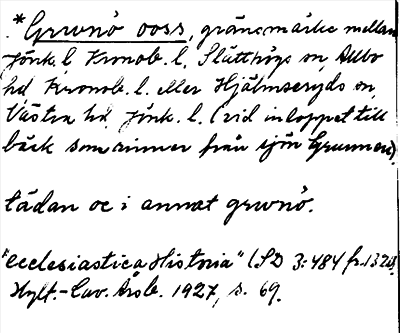 *Grwnö ooss, gränsmärke mellan
Jönk. l. Kronob. l. Slätthögs sn, Allbo
hd Kronob. l. eller Hjälmseryds sn,
Västra hd, Jönk. l. (vid inloppet till
bäck som rinner från sjön Grunnen)
tädan oc i annat grwnö.
"ecclesiastica Historia" (SD 3:484 fr. 1320)
Hylt.-Cav. Årsb. 1927, s. 69.